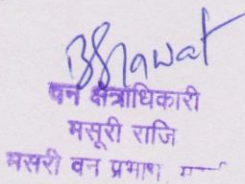 BSrawat
वन क्षेत्राधिकारी
मसूरी राजि
मसूरी वन प्रभाग